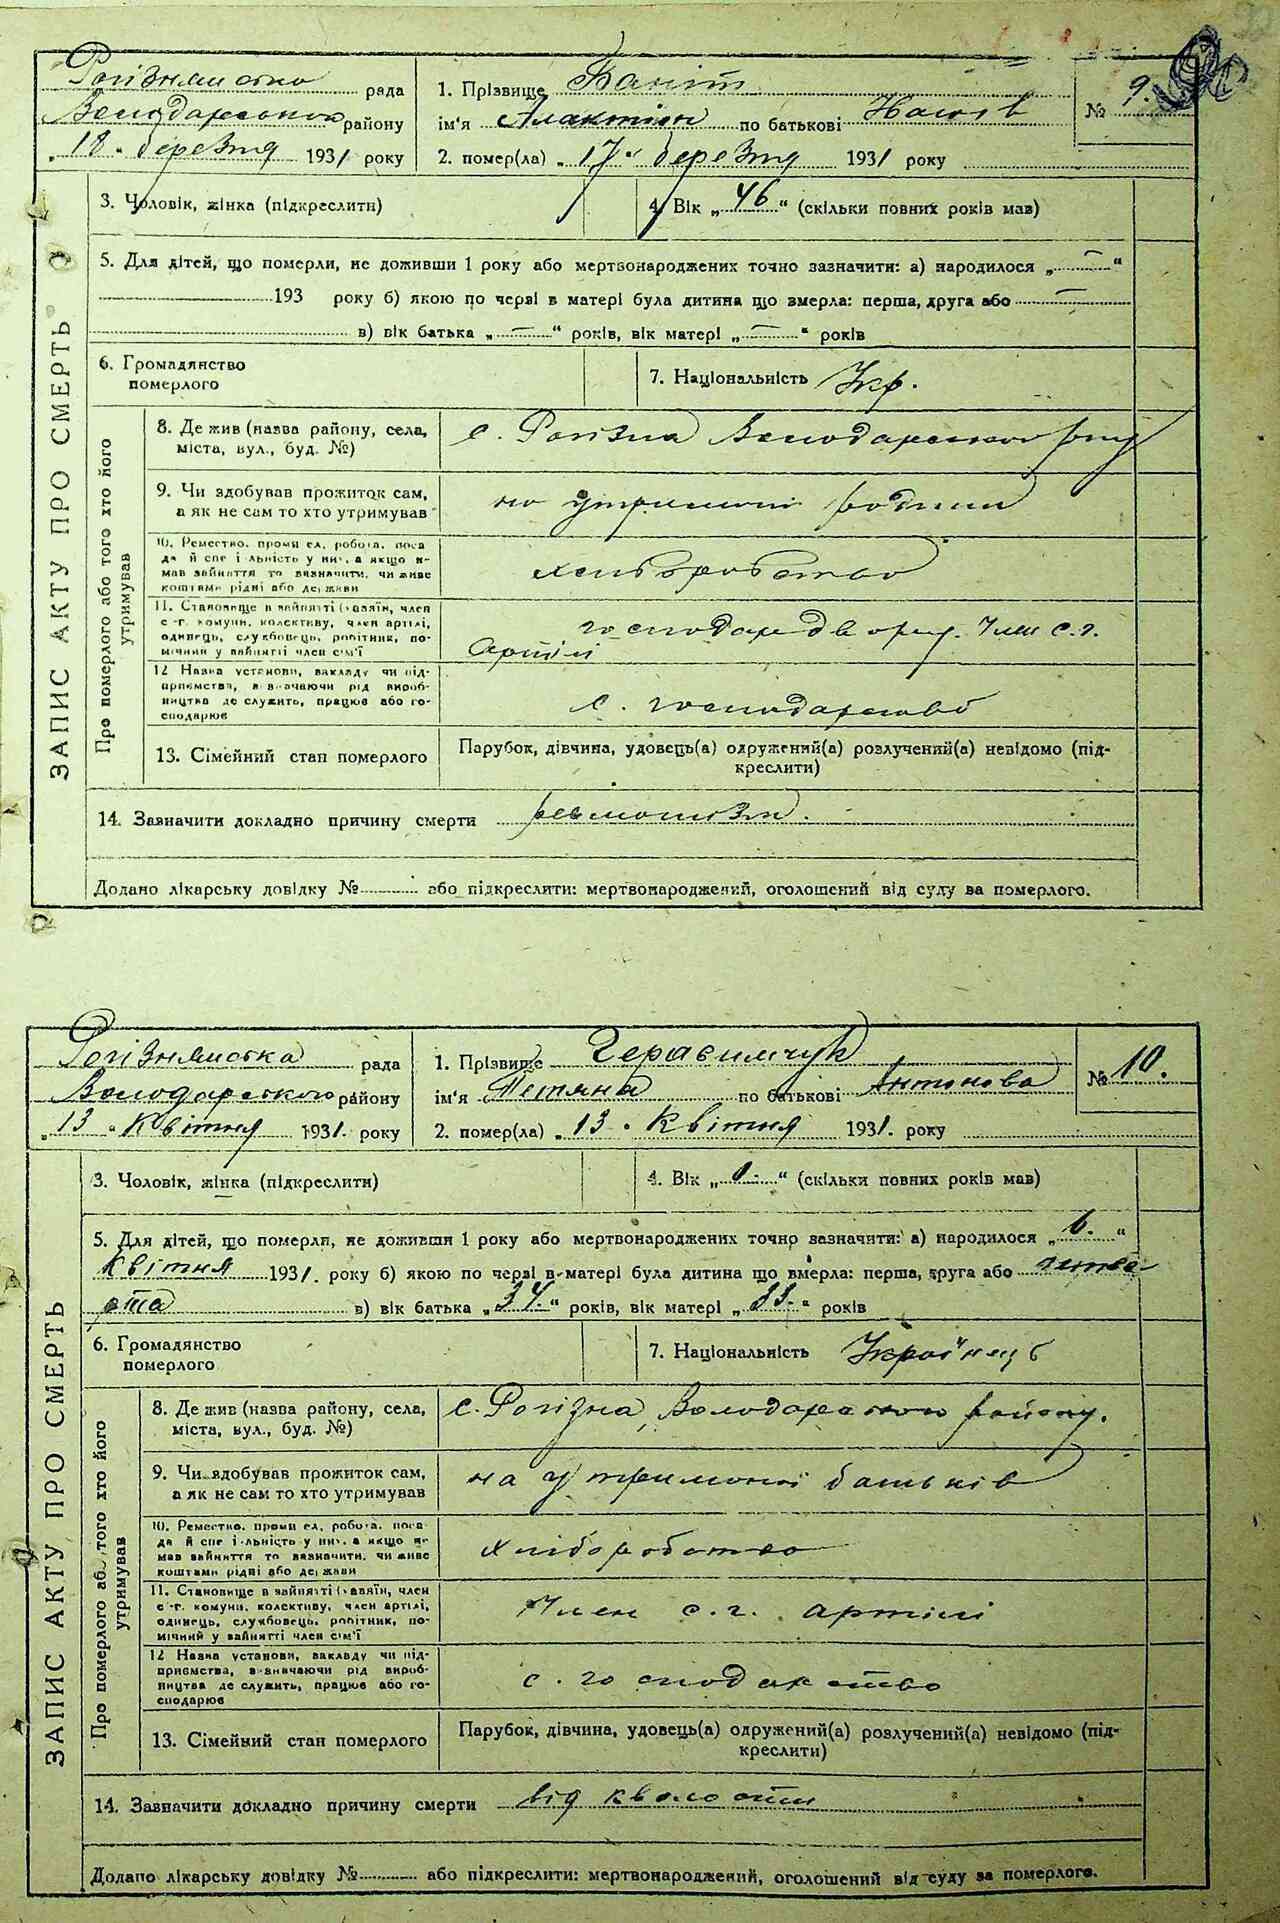 Рогізнянська рада
Володарського району
„18“ березня 1931 року
1. Прізвище
ім'я по батькові
2. помер(ла) „17“ березня 1931 року
№ 9.
3. Чоловік, жінка (підкреслити)
4. Вік „46“ (скільки повних років мав)
5. Для дітей, що померли, не доживши 1 року або мертвонароджених точно зазначити: а) народилося „—“
193 року б) якою по черзі в матері була дитина що вмерла: перша, друга або —
в) вік батька „—“ років, вік матері „—“ років
6. Громадянство
померлого
7. Національність Укр.
ЗАПИС АКТУ ПРО СМЕРТЬ
Про померлого або того хто його
утримував
8. Де жив (назва району, села,
міста, вул., буд. №)
с. Рогізна Володарського р-ну
9. Чи здобував прожиток сам,
а як не сам то хто утримував
на утриманні родини
10. Ремество, промисел, робота, поса
да й спеціяльність у них, а якщо не
мав зайняття то зазначити, чи живе
коштами рідні або держави
хліборобство
11. Становище в зайнятті (хазяїн, член
с.-г. комуни, колективу, член артілі,
одинець, службовець, робітник, по-
мічний у зайнятті член сім'ї
член с.г.
артілі
12 Назва установи, закладу чи під-
приємства, зазначаючи рід вироб-
ництва де служить, працює або го-
сподарює
с. господарство
13. Сімейний стан померлого
Парубок, дівчина, удовець(а) одружений(а) розлучений(а) невідомо (під-
креслити)
14. Зазначити докладно причину смерти ревматизм.
Додано лікарську довідку № або підкреслити: мертвонароджений, оголошений від суду за померлого.
Рогізнянська рада
Володарського району
„13“ Квітня 1931. року
1. Прізвище Герасимчук
ім'я Тетяна по батькові Антонова
2. помер(ла) „13“ Квітня 1931. року
№ 10.
3. Чоловік, жінка (підкреслити)
4. Вік „0“ (скільки повних років мав)
5. Для дітей, що померли, не доживши 1 року або мертвонароджених точно зазначити: а) народилося „6.“
Квітня 1931. року б) якою по черзі в матері була дитина що вмерла: перша, друга або четве
рта в) вік батька „34.“ років, вік матері „33.“ років
6. Громадянство
померлого
7. Національність Українець
ЗАПИС АКТУ ПРО СМЕРТЬ
Про померлого або того хто його
утримував
8. Де жив (назва району, села,
міста, вул., буд. №)
с. Рогізна, Володарського району.
9. Чи здобував прожиток сам,
а як не сам то хто утримував
на утриманні батьків
10. Ремество, промисел, робота, поса
да й спеціяльність у них, а якщо не
мав зайняття то зазначити, чи живе
коштами рідні або держави
хліборобство
11. Становище в зайнятті (хазяїн, член
с.-г. комуни, колективу, член артілі,
одинець, службовець, робітник, по-
мічний у зайнятті член сім'ї
Член с.г. артілі
12 Назва установи, закладу чи під-
приємства, зазначаючи рід вироб-
ництва де служить, працює або го-
сподарює
с. господарство
13. Сімейний стан померлого
Парубок, дівчина, удовець(а) одружений(а) розлучений(а) невідомо (під-
креслити)
14. Зазначити докладно причину смерти від кволости
Додано лікарську довідку № або підкреслити: мертвонароджений, оголошений від суду за померлого.